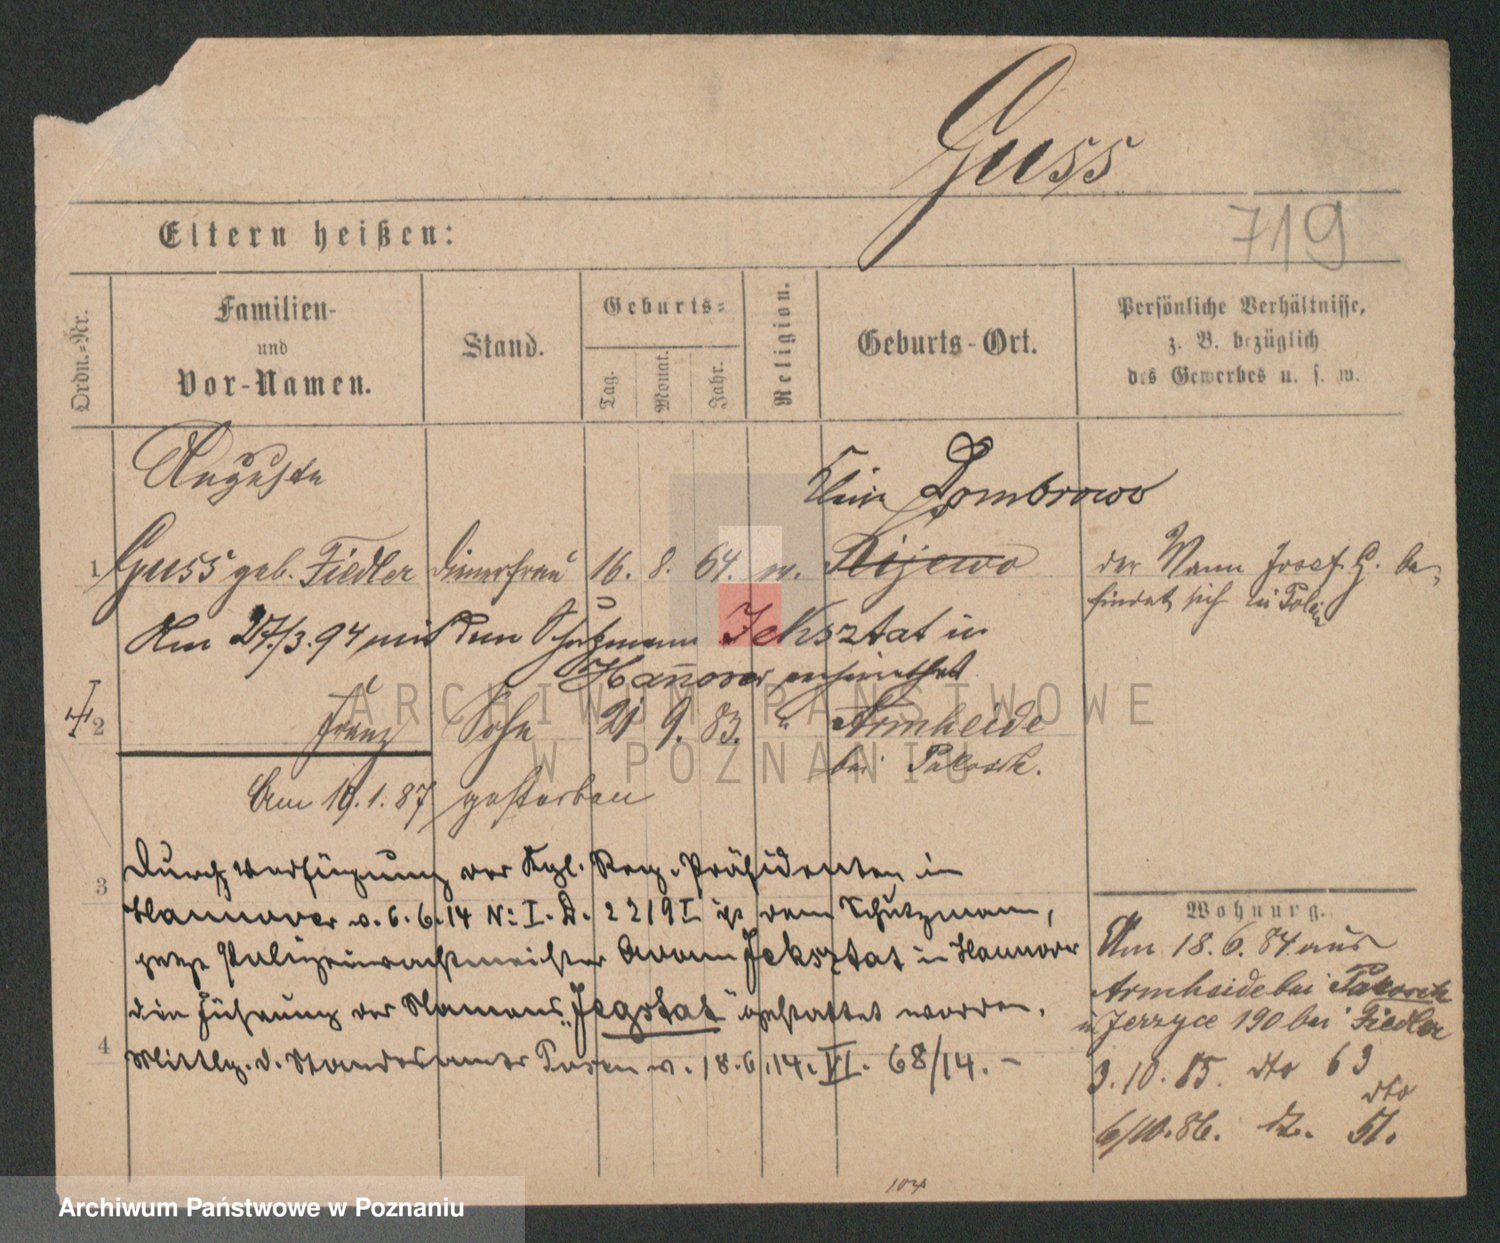 Guss
719
Eltern heißen:
Ordn.-Nr.
Familien-
und
Vor-Namen.
Stand.
Geburts-
Tag.
Monat.
Jahr.
Religion.
Geburts-Ort.
Persönliche Verhältnisse,
z. B. bezüglich
des Gewerbes u. s. w.
Auguste
Klein Dombrowo
1 Guss geb. Fiedler Dienerfrau 16. 8. 64. Rijewo
der Mann Josef G. be-
findet sich in
Am 27./3. 94 mit dem Schutzmann Jeksztat in
Hannover verheirathet
2 Franz Sohn 21 9. 83. " Armheide
bei Pakosch.
Am 19. 1. 87 gestorben
3
Durch Verfügung der Kgl. Reg. Präsidenten in
Hannover v. 6. 6. 14 N: I. D. 2219 I ist dem Schutzmann,
jetzt Polizeiwachtmeister Adam Jeksztat in Hannover
die Führung des Namens „Jegstat" gestattet worden.
4
Mittlg. d. Standesamts Posen v. 18. 6. 14. VI. 68/14. –
Wohnung.
Am 18. 6. 84 aus
Armheide bei Pakosch
n Jerzyce 190 bei Fiedler
3. 10. 85. dto 63
dto
6/10. 86. 51.
104
ARCHIWUM PAŃSTWOWE
W POZNANIU
Archiwum Państwowe w Poznaniu